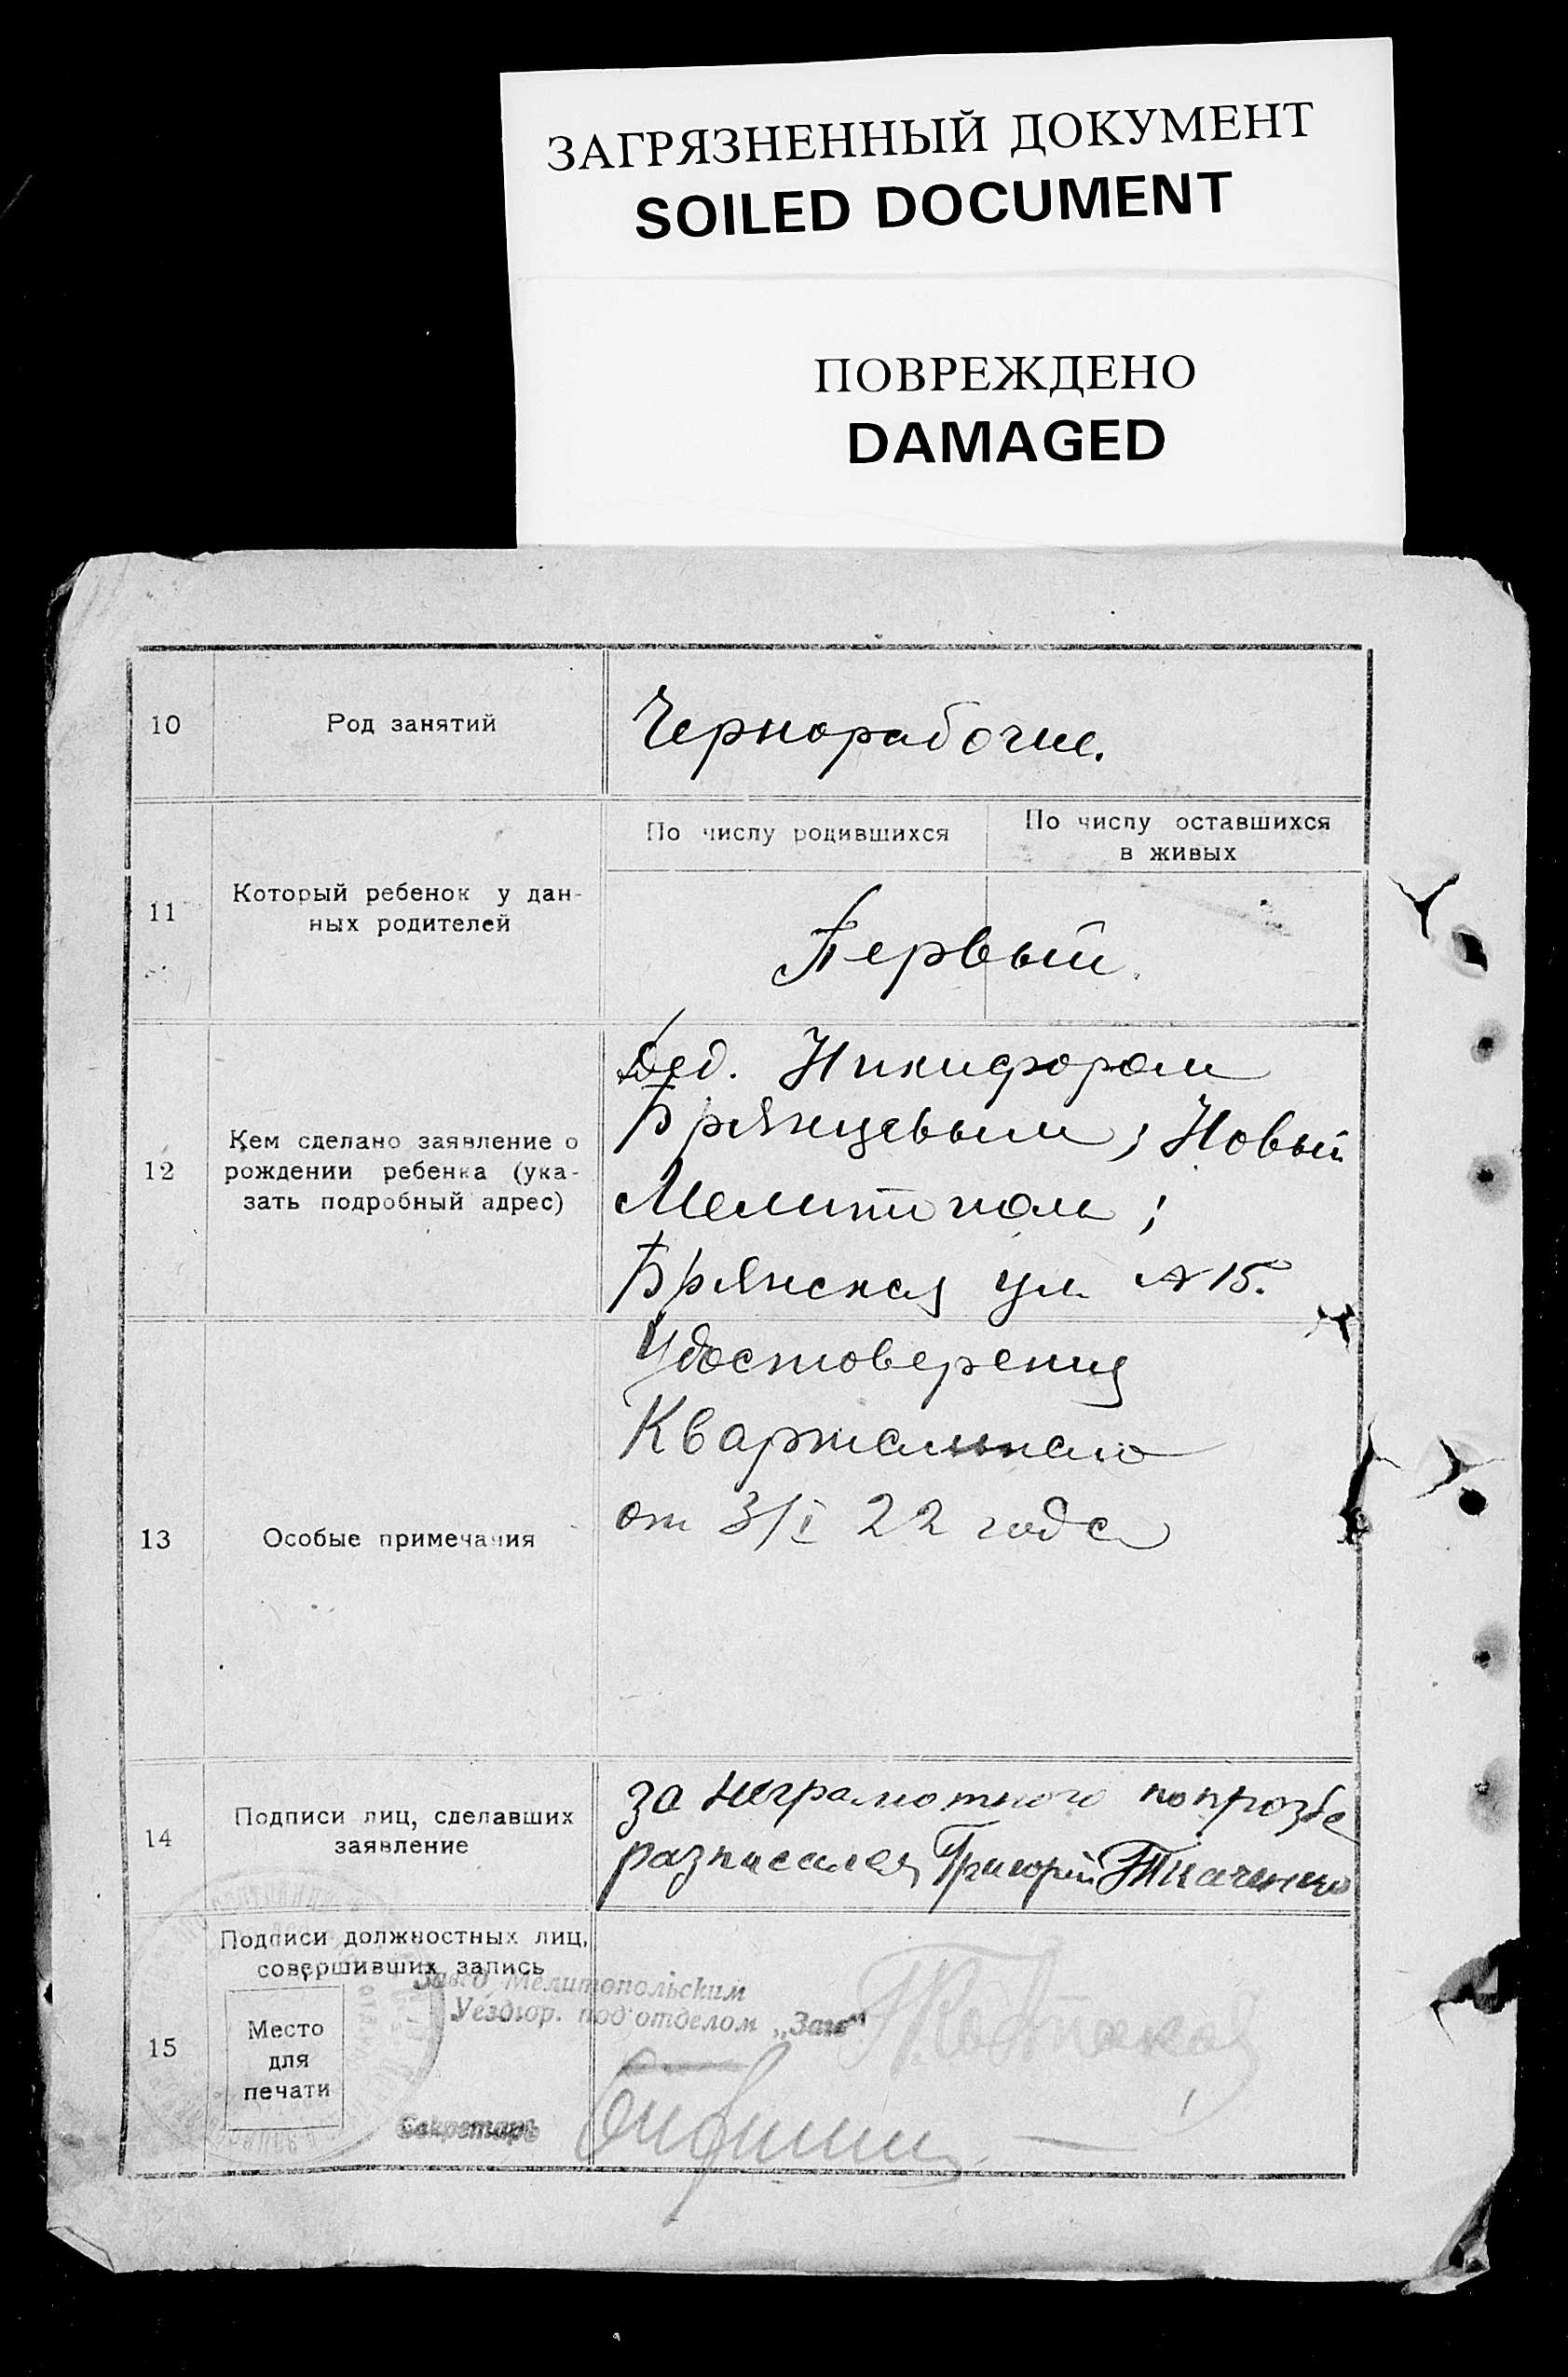 ЗАГРЯЗНЕННЫЙ ДОКУМЕНТ
SOILED DOCUMENT
ПОВРЕЖДЕНО
DAMAGED
10
Род занятий
Чернорабочие.
11
Который ребенок у дан-
ных родителей
По числу родившихся
По числу оставшихся
в живых
Первый.
12
Кем сделано заявление о
рождении ребенка (ука-
зать подробный адрес)
Дед. Никифором
Брянцевым; Новый
Мелитополь;
Брянская ул. № 15.
13
Особые примечания
Удостоверения
Квартального
от 3/I 22 года
14
Подписи лиц, сделавших
заявление
за неграмотного попрозбе
разписался Григорий Ткаченко
15
Подписи должностных лиц,
совершивших запись
Место
для
печати
Завед Мелитопольским
Уездюр. под'отделом „Загс"
Секретарь